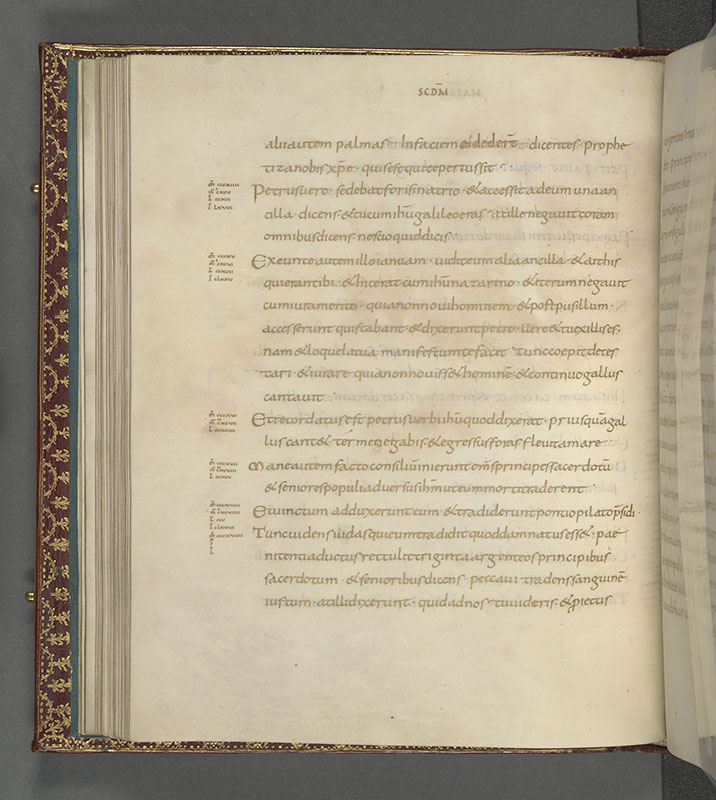 SCDM̄
alii autem palmas In faciem ei dederT̄ dicentes prophe
tiza nobis xp̄e quis est qui te percussit
Petrus uero sedebat foris In atrio & accessit ad eum una an
cilla dicens & tu cum ih̄u galileo eras at ille negauit coram
omnibus dicens nescio quid dicis
Exeunte autem illo ianuam uidit eum alia ancilla & ait his
qui erant ibi & hic erat cum ih̄u nazareno & iterum negauit
cum iuramento quia non noui hominem & post pusillum
accesserunt qui stabant & dixerunt petro uere & tu ex illis es
nam & loquela tua manifestum te facit tunc coepit detes
tari & iurare quia non nouiss& hominē & continuo gallus
cantauit
Et recordatus est petrus uerbi ih̄u quod dixerat priusquā gal
lus cant& ter me negabis & egressus foras fleuit amare
Mane autem facto consiliū inierunt om̄s principes sacerdotū
& seniores populi aduersus ih̄m ut eum morti traderent
Et uinctum adduxerunt eum & tradiderunt pontio pilato p̄sidi
Tunc uidens iudas qui eum tradidit quod damnatus ess& pae
nitentia ductus rettulit triginta argenteos principibus
sacerdotum & senioribus dicens peccaui tradens sanguinē
iustum at illi dixerunt quid ad nos tu uideris & proiectis